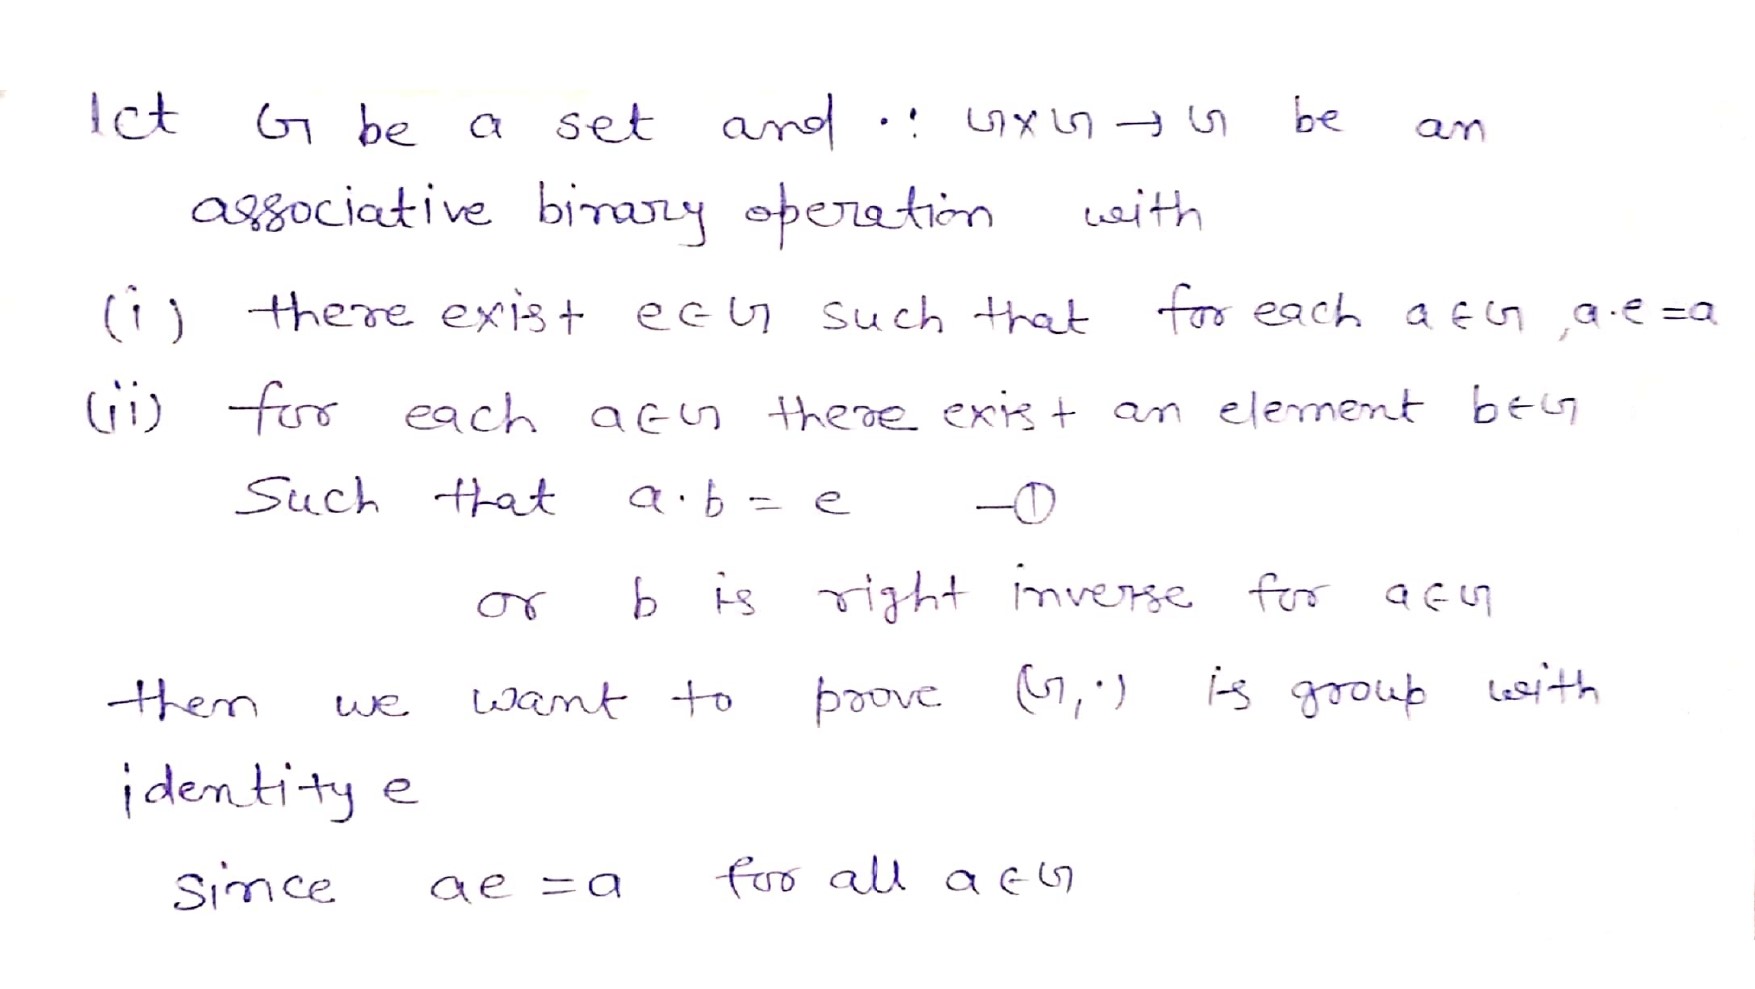 let G be a set and ·: G×G → G be an
associative binary operation with
(i) there exist e∈G such that for each a∈G, a·e=a
(ii) for each a∈G there exist an element b∈G
Such that a·b = e —①
or b is right inverse for a∈G
then we want to prove (G,·) is group with
identity e
since ae = a for all a∈G